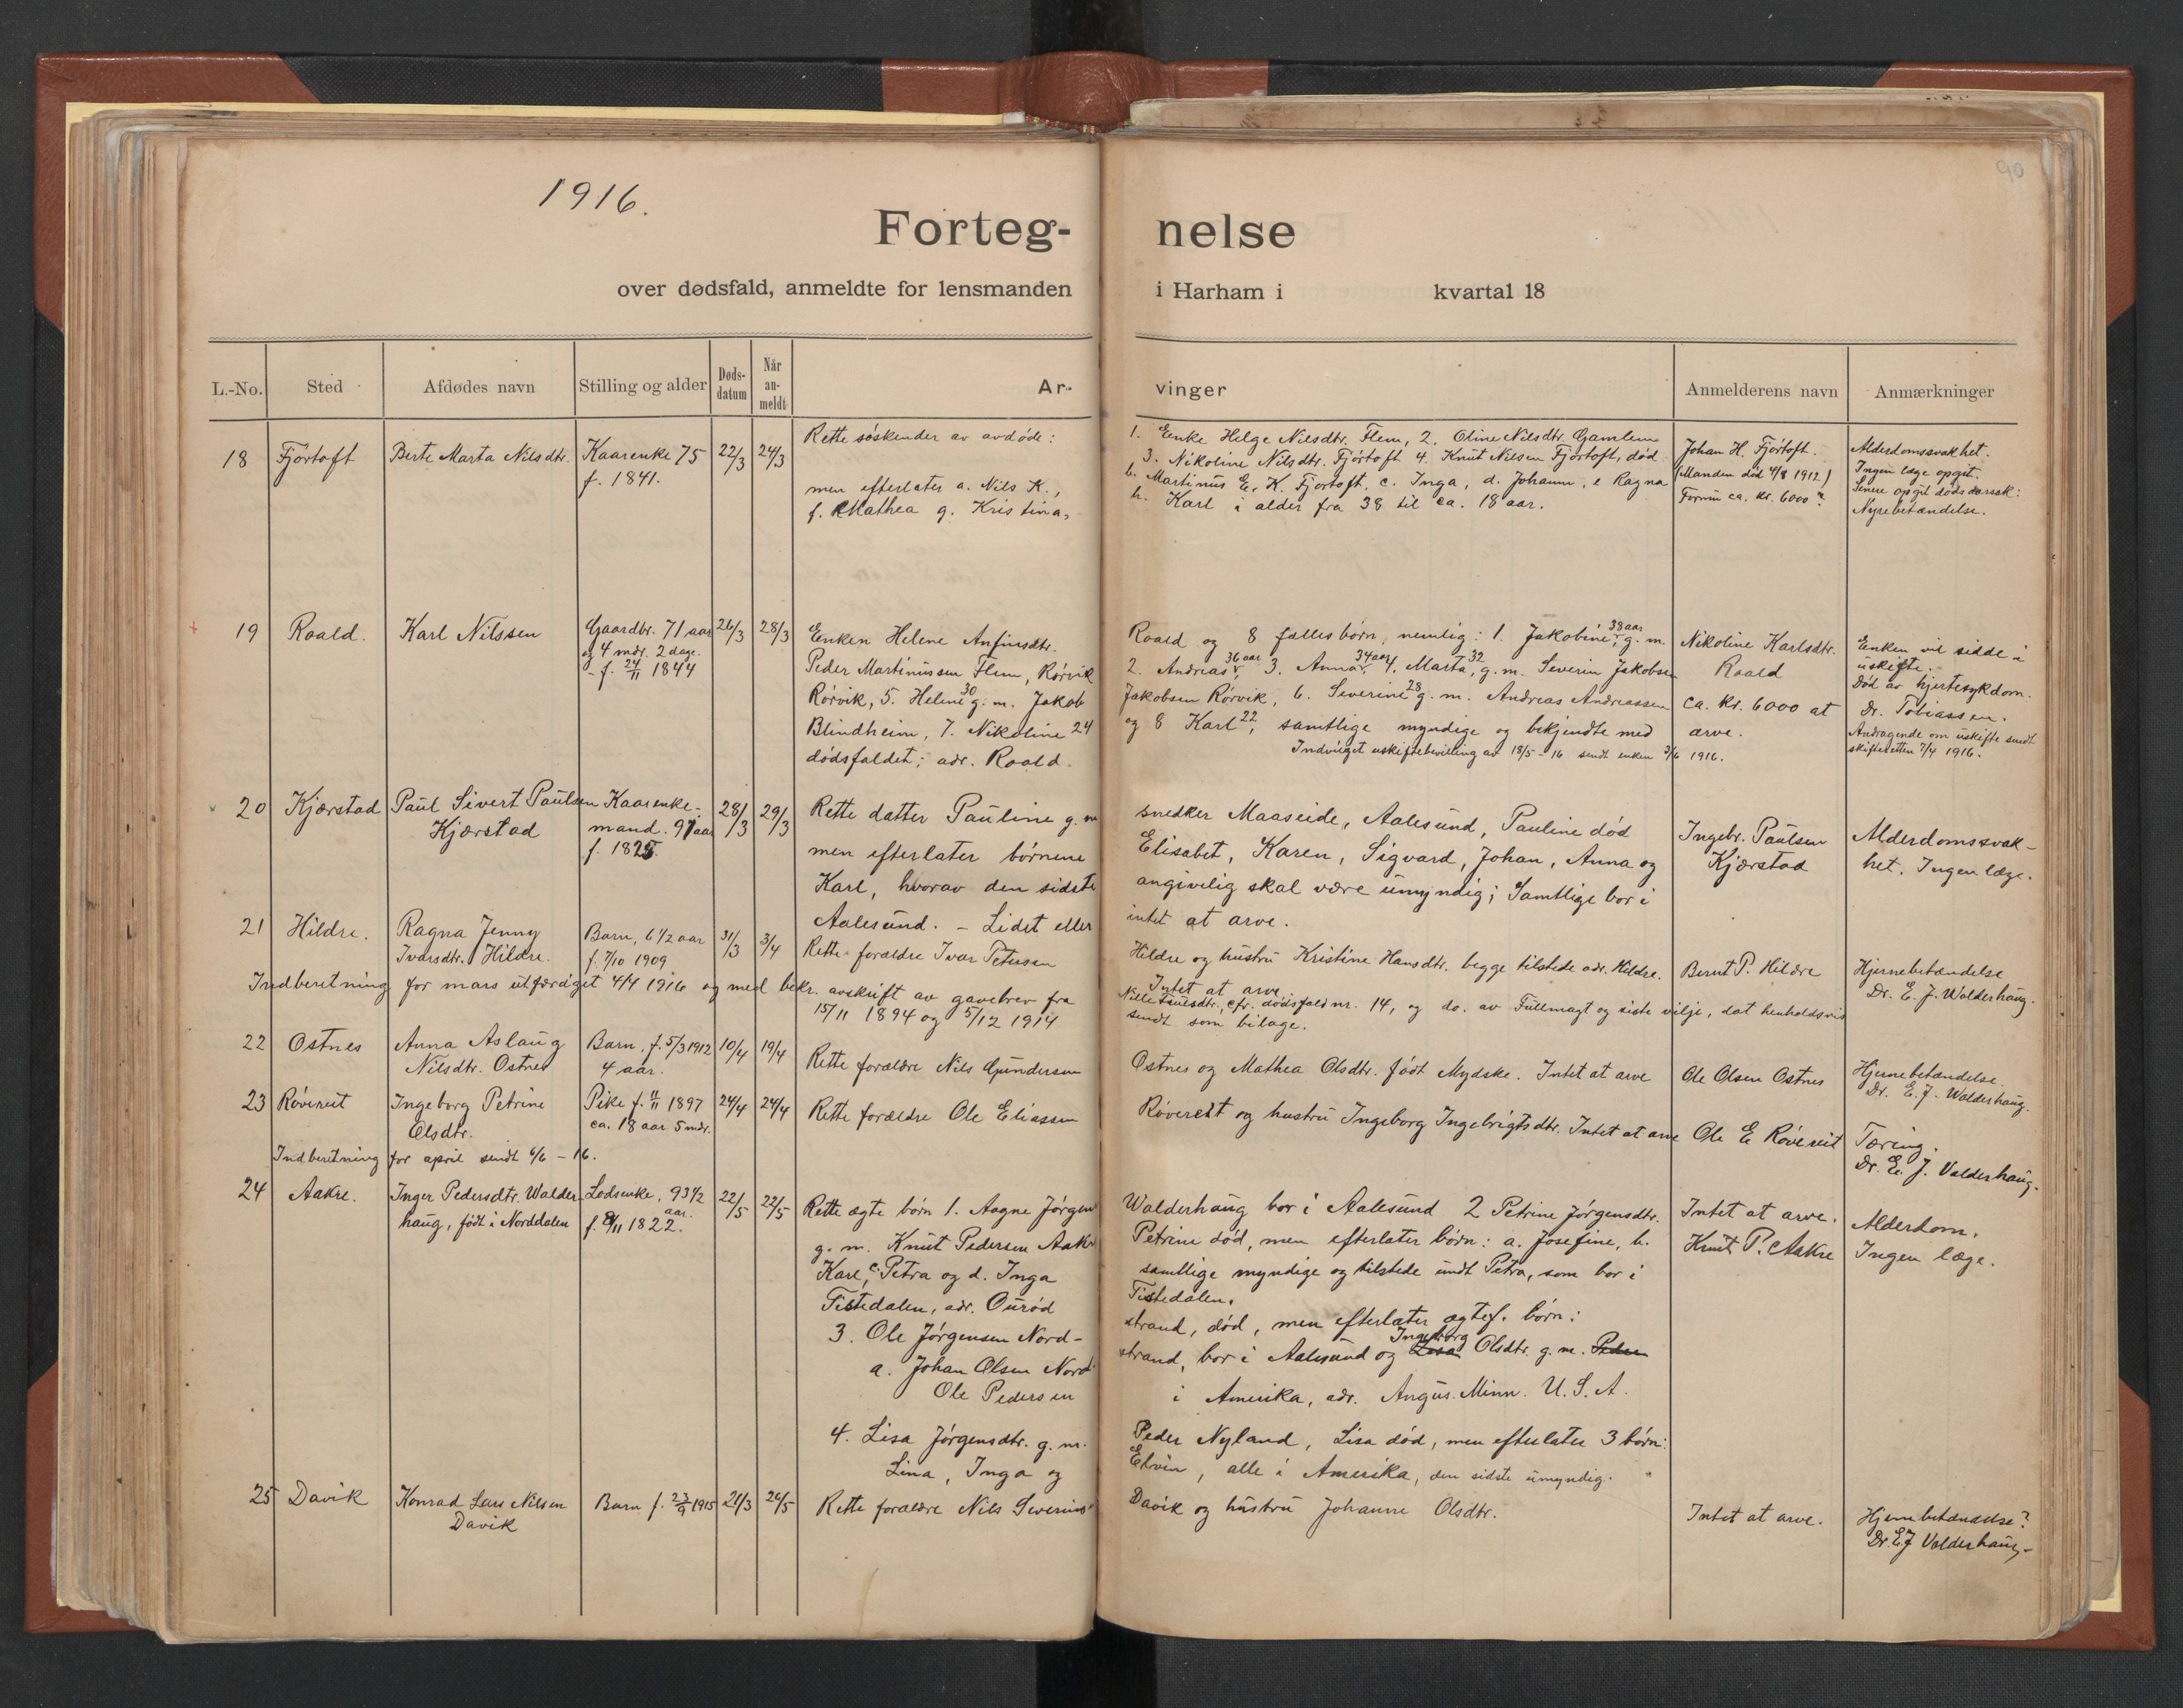 1916.
90
Forteg- nelse
over dødsfald, anmeldte for lensmanden i Harham i kvartal 18
L.-No. Sted Afdødes navn Stilling og alder Døds-datum Når an-meldt Ar- vinger Anmelderens navn Anmærkninger
18 Fjørtoft Berte Marta Nilsdtr. Kaarenke 75 22/3 24/3
f. 1841.
Rette søskender av avdøde: 1. Enke Helge Nilsdtr. Flem, 2. Oline Nilsdtr. Gamlem
3. Nikoline Nilsdtr. Fjørtoft 4. Knut Nilsen Fjørtoft, død
men efterlater a. Nils K., b. Martinus E. K. Fjørtoft. c. Inga, d. Johann, e Ragna
f. Mathea g. Kristina, h. Karl i alder fra 38 til ca. 18 aar.
Johan H. Fjørtoft.
(Manden død 4/8 1912)
Formu ca. kr. 6000 ?
Alderdomssvakhet.
Ingen læge opgit.
Senere opgit dødsaarsak:
Nyrebetændelse.
19 Roald. Karl Nilssen Gaardbr. 71 aar 26/3 28/3
og 4 mdr. 2 dage.
- f. 24/11 1844
Enken Helene Anfinsdtr. Roald og 8 fællesbørn, nemlig: 1. Jakobine 38 aar, g. m.
Peder Martinussen Flem, Rørvik 2. Andreas 36 aar, 3. Anna 34 aar, 4. Marta 32, g. m. Severin Jakobsen
Rørvik, 5. Heline 30 g. m. Jakob Jakobsen Rørvik, 6. Severine 28 g. m. Andreas Andreassen
Blindheim, 7. Nikoline 24 og 8 Karl 22, samtlige myndige og bekjendte med
dødsfaldet; adr. Roald.
Indvilget uskiftebevilling av 18/5 - 16 sendt enken 3/6 1916.
Nikoline Karlsdtr.
Roald
ca. kr. 6000 at
arve.
Enken vil sidde i
uskifte.
Død av hjertesykdom.
Dr. Tobiassen.
Andragende om uskifte sendt
skifteretten 7/4 1916.
20 Kjærstad Paul Sivert Paulsen Kaarenke- 28/3 29/3
Kjærstad mand. 91 aar
f. 1825.
Rette datter Pauline g. m. snedker Maaseide, Aalesund, Pauline død
men efterlater børnene Elisabet, Karen, Sigvard, Johan, Anna og
Karl, hvorav den sidste angivelig skal være umyndig; Samtlige bor i
Aalesund. - Lidet eller intet at arve.
Ingebr. Paulsen
Kjærstad
Alderdomssvak-
het. Ingen læge.
21 Hildre. Ragna Jenny Barn, 6 1/2 aar 31/3 3/4
Ivarsdtr. Hildre. f. 7/10 1909
Rette forældre Ivar Petersen Hildre og hustru Kristine Hansdtr. begge tilstede adr. Hildre.
Intet at arve.
Bernt P. Hildre
Hjernebetændelse
Dr. E. J. Walderhaug.
Indberetning for mars utfærdiget 4/4 1916 og med bekr. avskrift av gavebrev fra
Nille Paulsdtr., cfr. dødsfald nr. 14, og do. av Fuldmagt og siste vilje, dat henholdsvis
15/11 1894 og 5/12 1914 sendt som bilage.
22 Ostnes Anna Aslaug Barn, f. 5/3 1912 10/4 19/4
Nilsdtr. Ostnes 4 aar.
Rette forældre Nils Gundersen Ostnes og Mathea Olsdtr. født Mydske. Intet at arve
Ole Olsen Ostnes
Hjernebetændelse.
Dr. E. J. Walderhaug.
23 Røvereit Ingeborg Petrine Pike f. 11/11 1897 24/4 24/4
Olsdtr. ca. 18 aar 5 mdr.
Rette forældre Ole Eliassen Røvereit og hustru Ingeborg Ingebrigtsdtr. Intet at arve
Ole E Røvereit
Tæring.
Dr. E. J. Valderhaug.
Indberetning for april sendt 6/6 - 16.
24 Aakre. Inger Pedersdtr. Walder- Lodsenke, 93 1/2 22/5 22/5
haug, født i Norddalen aar.
f. 8/11 1822.
Rette ægte børn 1. Aagne Jørgen Walderhaug bor i Aalesund 2 Petrine Jørgensdtr.
g. m. Knut Pedersen Aakre Petrine død, men efterlater børn: a. Josefine, b.
Karl, c. Petra og d. Inga samtlige myndige og tilstede undt Petra, som bor i
Tistedalen, adr. Ourød Tistedalen.
3. Ole Jørgensen Nord- strand, død, men efterlater ægtef. børn:
a. Johan Olsen Nord strand, bor i Aalesund og Lisa Ingeborg Olsdtr. g. m. Peder
Ole Pedersen i Amerika, adr. Angus. Minn. U. S. A.
4. Lisa Jørgensdtr. g. m. Peder Nyland, Lisa død, men efterlater 3 børn:
Lina, Inga og Elvin, alle i Amerika, den sidste umyndig.
Intet at arve.
Knut P. Aakre
Alderdom.
Ingen læge.
25 Davik Konrad Lars Nilsen Barn f. 23/9 1915 21/3 24/5
Davik
Rette forældre Nils Severins Davik og hustru Johanne Olsdtr.
Intet at arve.
Hjernebetændelse?
Dr. E J Valderhaug.